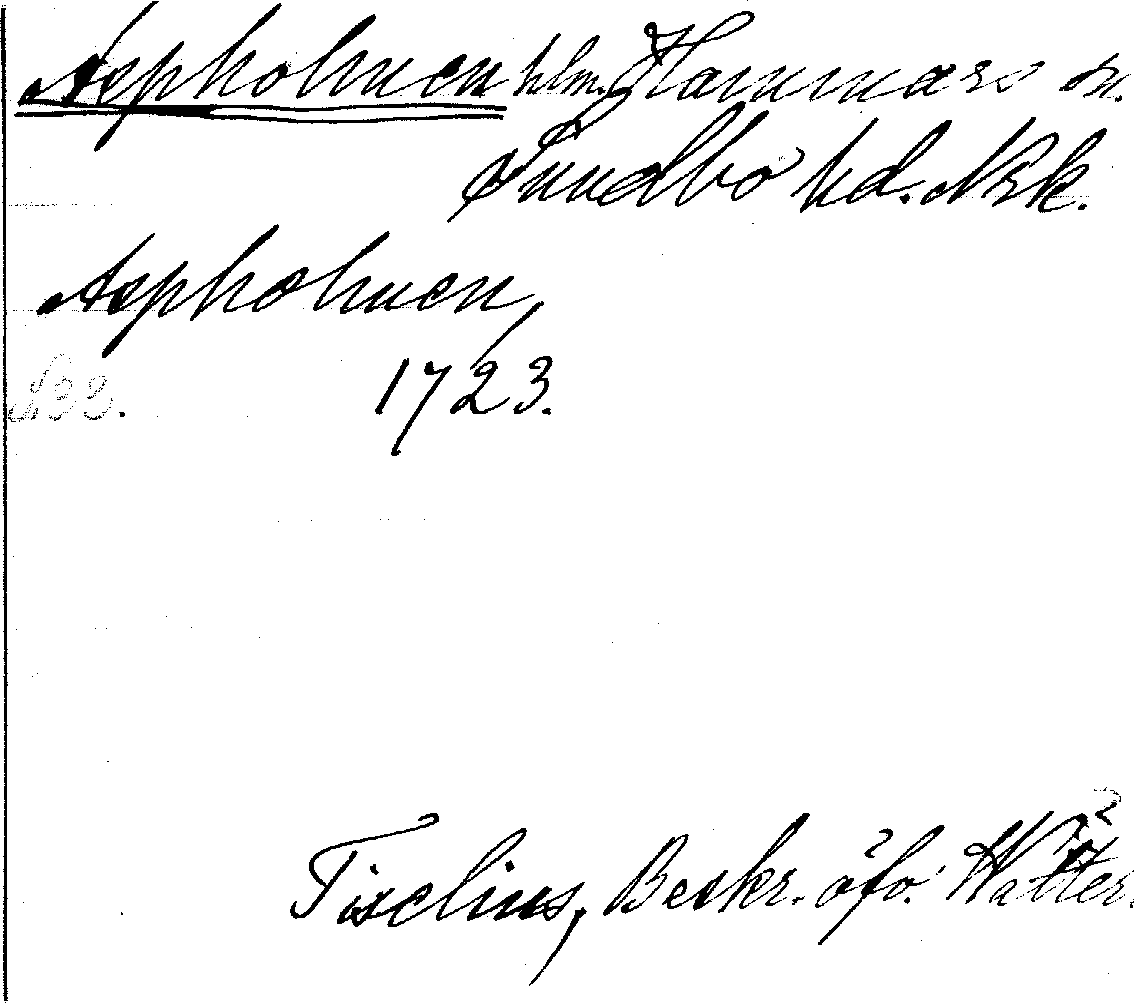 Aspholmen hlm. Hammars sn.
Sundbo hd. Nrk.
Aspholmen,
1723.
Tiselius, Beskr. öfv. Wätter.